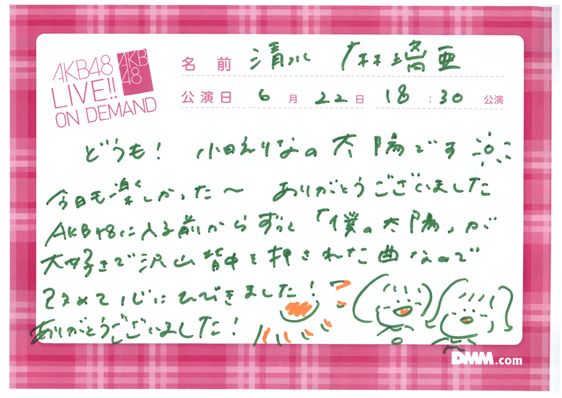 AKB48
LIVE!!
ON DEMAND
AKB
48
名前 清水 麻璃亜
公演日 6月22日 18:30公演
どうも！ 小田えりなの太陽です
今日も楽しかった〜 ありがとうございました
AKB48に入る前からずっと「僕の太陽」が
大好きで沢山背中を押された曲なので
改めて心にひびきました！
ありがとうございました！
DMM.com